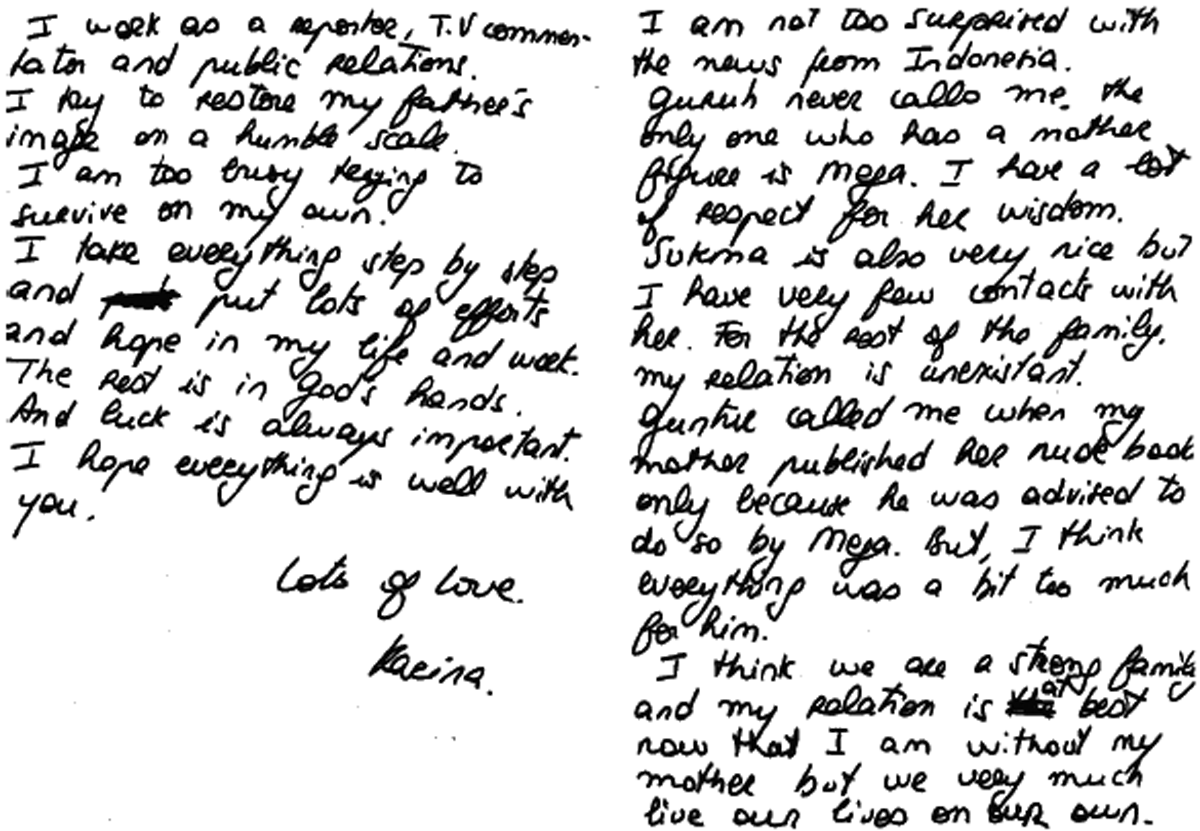 I work as a reporter, T.V commen-
tator and public relations.
I try to restore my father's
image on a humble scale.
I am too busy trying to
survive on my own.
I take everything step by step
and put lots of efforts
and hope in my life and work.
The rest is in God's hands.
And luck is always important.
I hope everything is well with
you.
Lots of love.
Karina.
I am not too surprised with
the news from Indonesia.
Guruh never calls me. the
only one who has a mother
figure is Mega. I have a lot
of respect for her wisdom.
Sukma is also very nice but
I have very few contacts with
her. For the rest of the family.
my relation is unexistant.
Guntur called me when my
mother published her nude book
only because he was advised to
do so by Mega. But, I think
everything was a bit too much
for him.
I think we are a strong family
and my relation is at best
now that I am without my
mother but we very much
live our lives on our own.